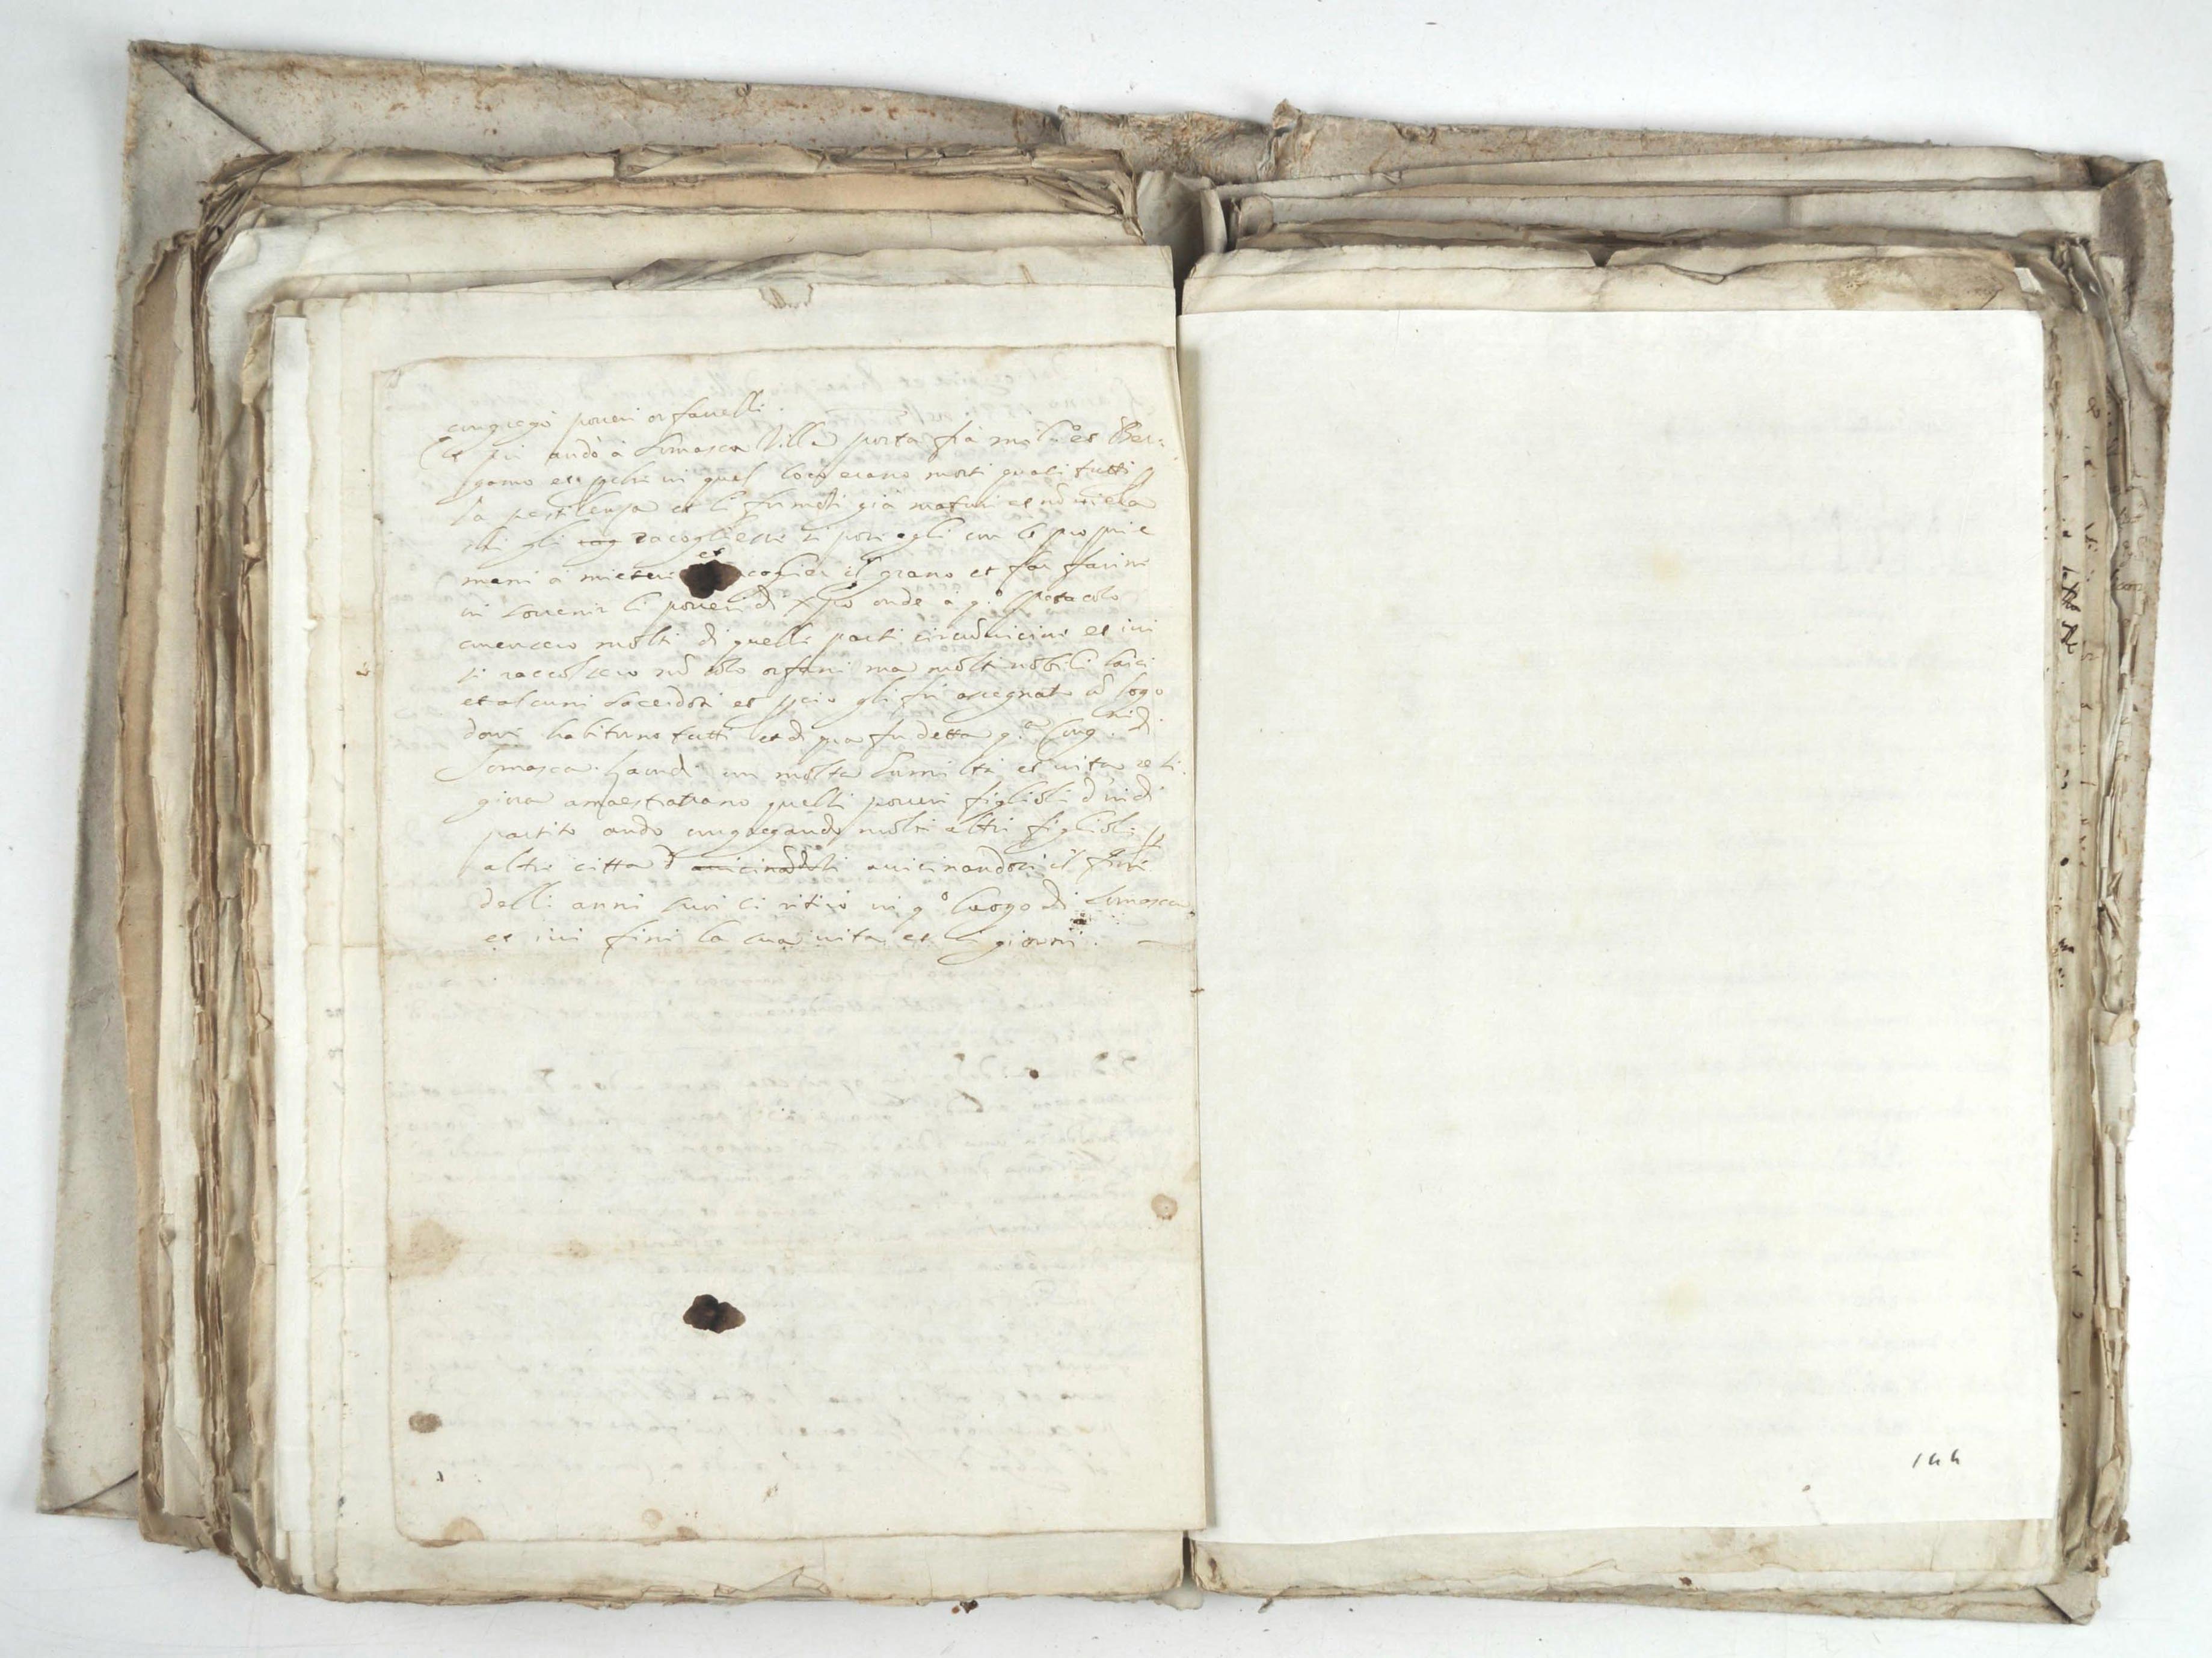 congregò poveri orfanelli.
Et poi andò à Somasca Villa posta frà mil.º et Ber=
gamo et pche in quel loco erano morti quasi tutti p
la pestilenza et li frumẽti già maturi et nõ ui era
chi gli racogliesse si pose egli con le proprie
mani à mietere et coglier il grano et far farine
in souenir li poueri di Xpo onde à q.º spetacolo
concorsero molti di quelle parti circũuicine et iui
si raccolsero nõ solo orfani ma molti nobili laici
et alcuni sacerdoti et pciò gli fù assegnato uñ logo
doue habitorno tutti et di qua fu detta q.ª Cong.ni di
Somasca. haundo con molta humiltà et uita reli
giosa amaestrauano quelli poueri figlioli d' indi
partito andò congregando molti altri figlioli p
altre città auicinandosi il fine
delli anni suoi si ritirò in q.º luogo di Somasca
et iui finì la sua uita et li giorni.
144